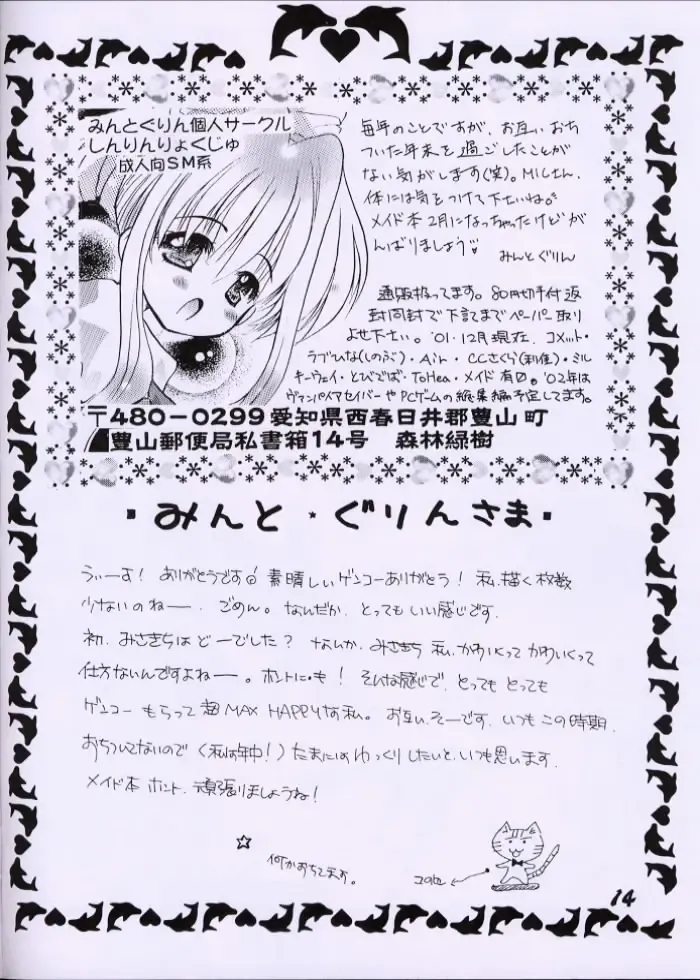 みんとぐりん個人サークル
しんりんりょくじゅ
成人向SM系
毎年のことですが、お互いおち
ついた年末を過ごしたことが
ない気がします(笑)。MICさん、
体には気をつけて下さいね。
メイド本2月になっちゃったけどが
んばりましょう
みんとぐりん
通販扱ってます。80円切手付返
封同封で下記までペーパー取り
よせ下さい。'01・12月現在、コメット・
ラブひな(しのぶ)・Air・CCさくら(利佳)・ミル
キーウェイ・とびでばで・ToHea・メイド有り。'02年は
ヴァンパイアセイバーやPCゲームの総集編予定してます。
〒480-0299愛知県西春日井郡豊山町
豊山郵便局私書箱14号 森林緑樹
みんと・ぐりんさま
うぃーす! ありがとうです 素晴しいゲンコーありがとう! 私、描く枚数
少ないのねー、ごめん。なんだか、とってもいい感じです。
初、みさきちはどーでした? なんか、みさきち 私、かわいくって かわいくって
仕方ないんですよねー。ホントに・も! そんな感じで、とっても とっても
ゲンコー もらって 超MAX HAPPYな私。お互い、そーです、いつもこの時期、
おちついてないので(私は年中!)たまにはゆっくりしたいと、いつも思います。
メイド本 ホント、頑張りましょうね!
☆
何かおちてます。
14